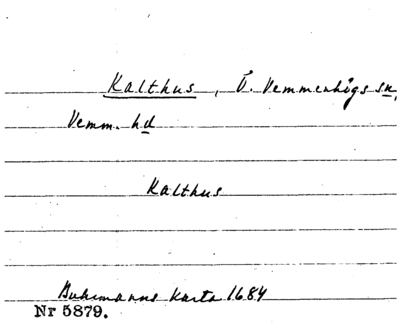 Kalthus, Ö. Vemmenhögs sn,
Vemm. hd
Kalthus
Buhrmanns karta 1684
Nr 5879.